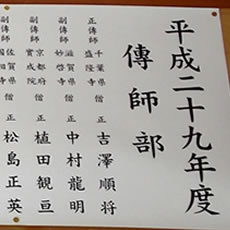 平成二十九年度
傳師部
正傳師 千葉県 盛隆寺 僧正 吉澤順将
副傳師 滋賀県 妙啓寺 僧正 中村龍明
副傳師 京都府 實成院 僧正 植田観亘
副傳師 佐賀県 僧正 松島正英